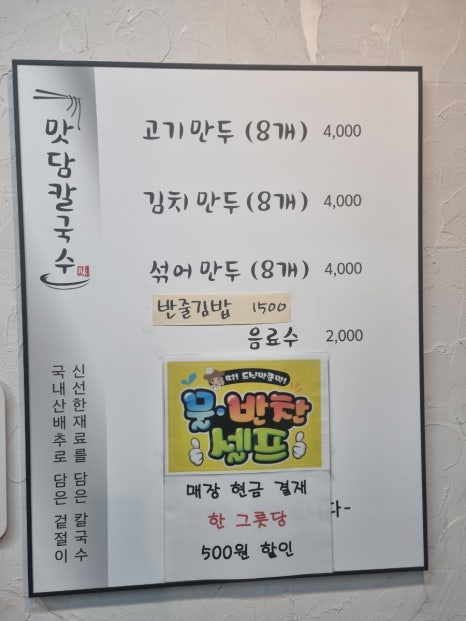 맛담칼국수
味
신선한재료를 담은 칼국수
국내산배추로 담은 겉절이
고기만두 (8개) 4,000
김치만두 (8개) 4,000
섞어만두 (8개) 4,000
반줄김밥 1500
음료수 2,000
물·반찬
셀프
매장 현금 결재
한 그릇당
500원 할인
다-